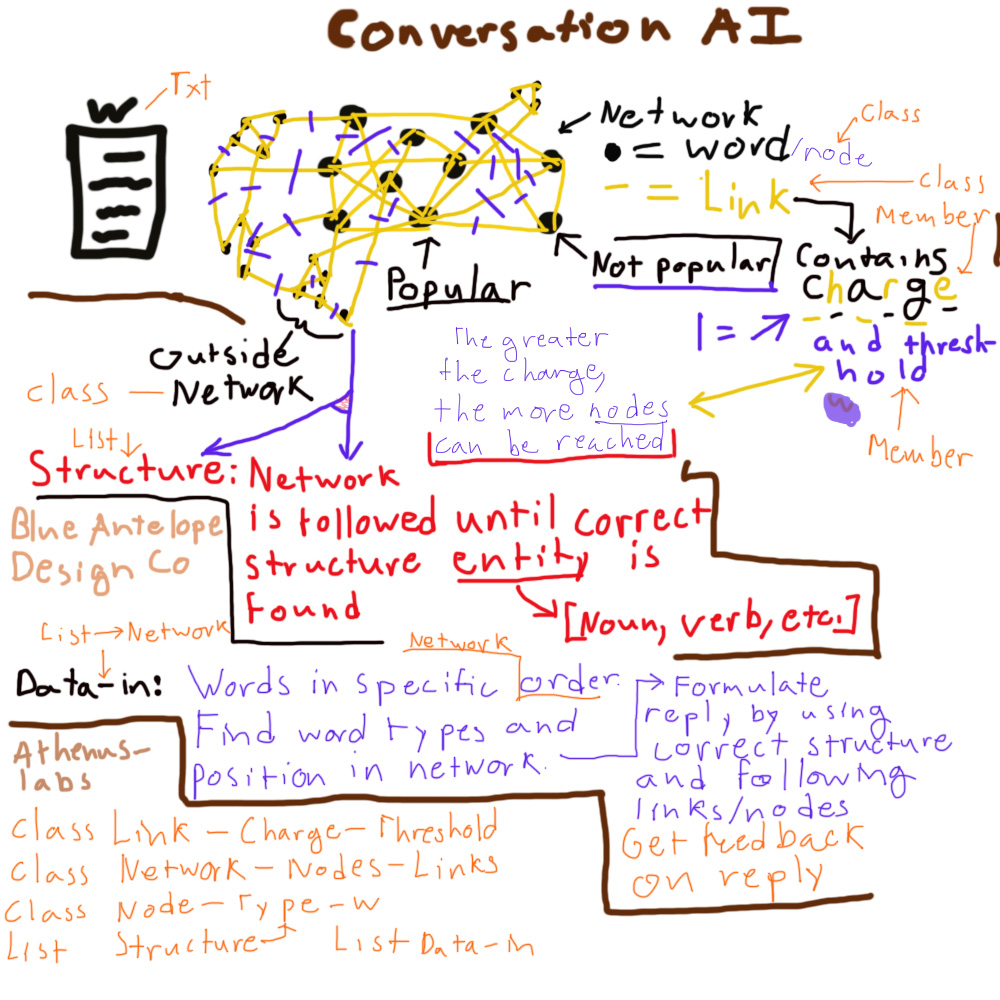 Conversation AI
W
Txt
Network
● = word/node
class
- = Link
class
Member
Contains
charge
| =
and thresh-
hold
w
Member
Popular
Not popular
Outside
Network
class
The greater
the charge,
the more nodes
can be reached
List
Structure: Network
is followed until correct
structure entity is
found
[Noun, verb, etc.]
Blue Antelope
Design Co
List → Network
Data-in:
Network
Words in specific order.
Find word types and
position in network.
Formulate
reply by using
correct structure
and following
links/nodes
Get feedback
on reply
Athenus-
labs
Class Link - Charge - Threshold
Class Network - Nodes - Links
Class Node - Type - w
List Structure List Data-in